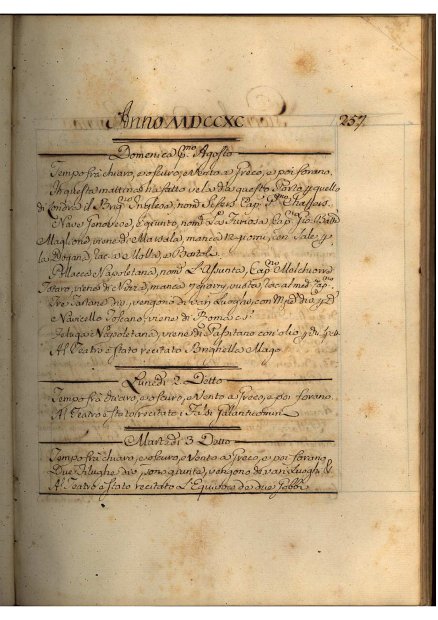 Anno MDCCXC
257
Domenica P.mo Agosto
Tempo frà chiaro, e oscuro, e Vento a Greco, e poi forano.
questa mattina hà fatto vela da questo Porto p. quello
di Londra il Brig.no Inglese, nom.
Nave Genovese, è giunto, nom. La Furiosa Cap.
viene di Marsala, manca 12 giorni, con Sale p.
la Dogana,
Pollacca Napoletana, nom. L'Assunta, Cap.no Melchiorre
viene di Nizza, manca 7 giorni, vuota,
Tre Tartane div. vengono di varj Luoghi, con
e Navicello Toscano, viene di
Feluga Napoletana, viene di con olio p. di
Al Teatro è stato recitato Brighella Mago.
Lunedì 2 Detto
Tempo frà chiaro, e oscuro, e Vento a Greco, e poi forano.
Al Teatro è stato recitato i Falsi Galantuomini.
Martedì 3 Detto
Tempo frà chiaro, e oscuro, e Vento a Greco, e poi forano.
Due Filughe div. sono giunte, vengono di varj Luoghi &
Al Teatro è stato recitato L'Equivoco de due Gobbi.